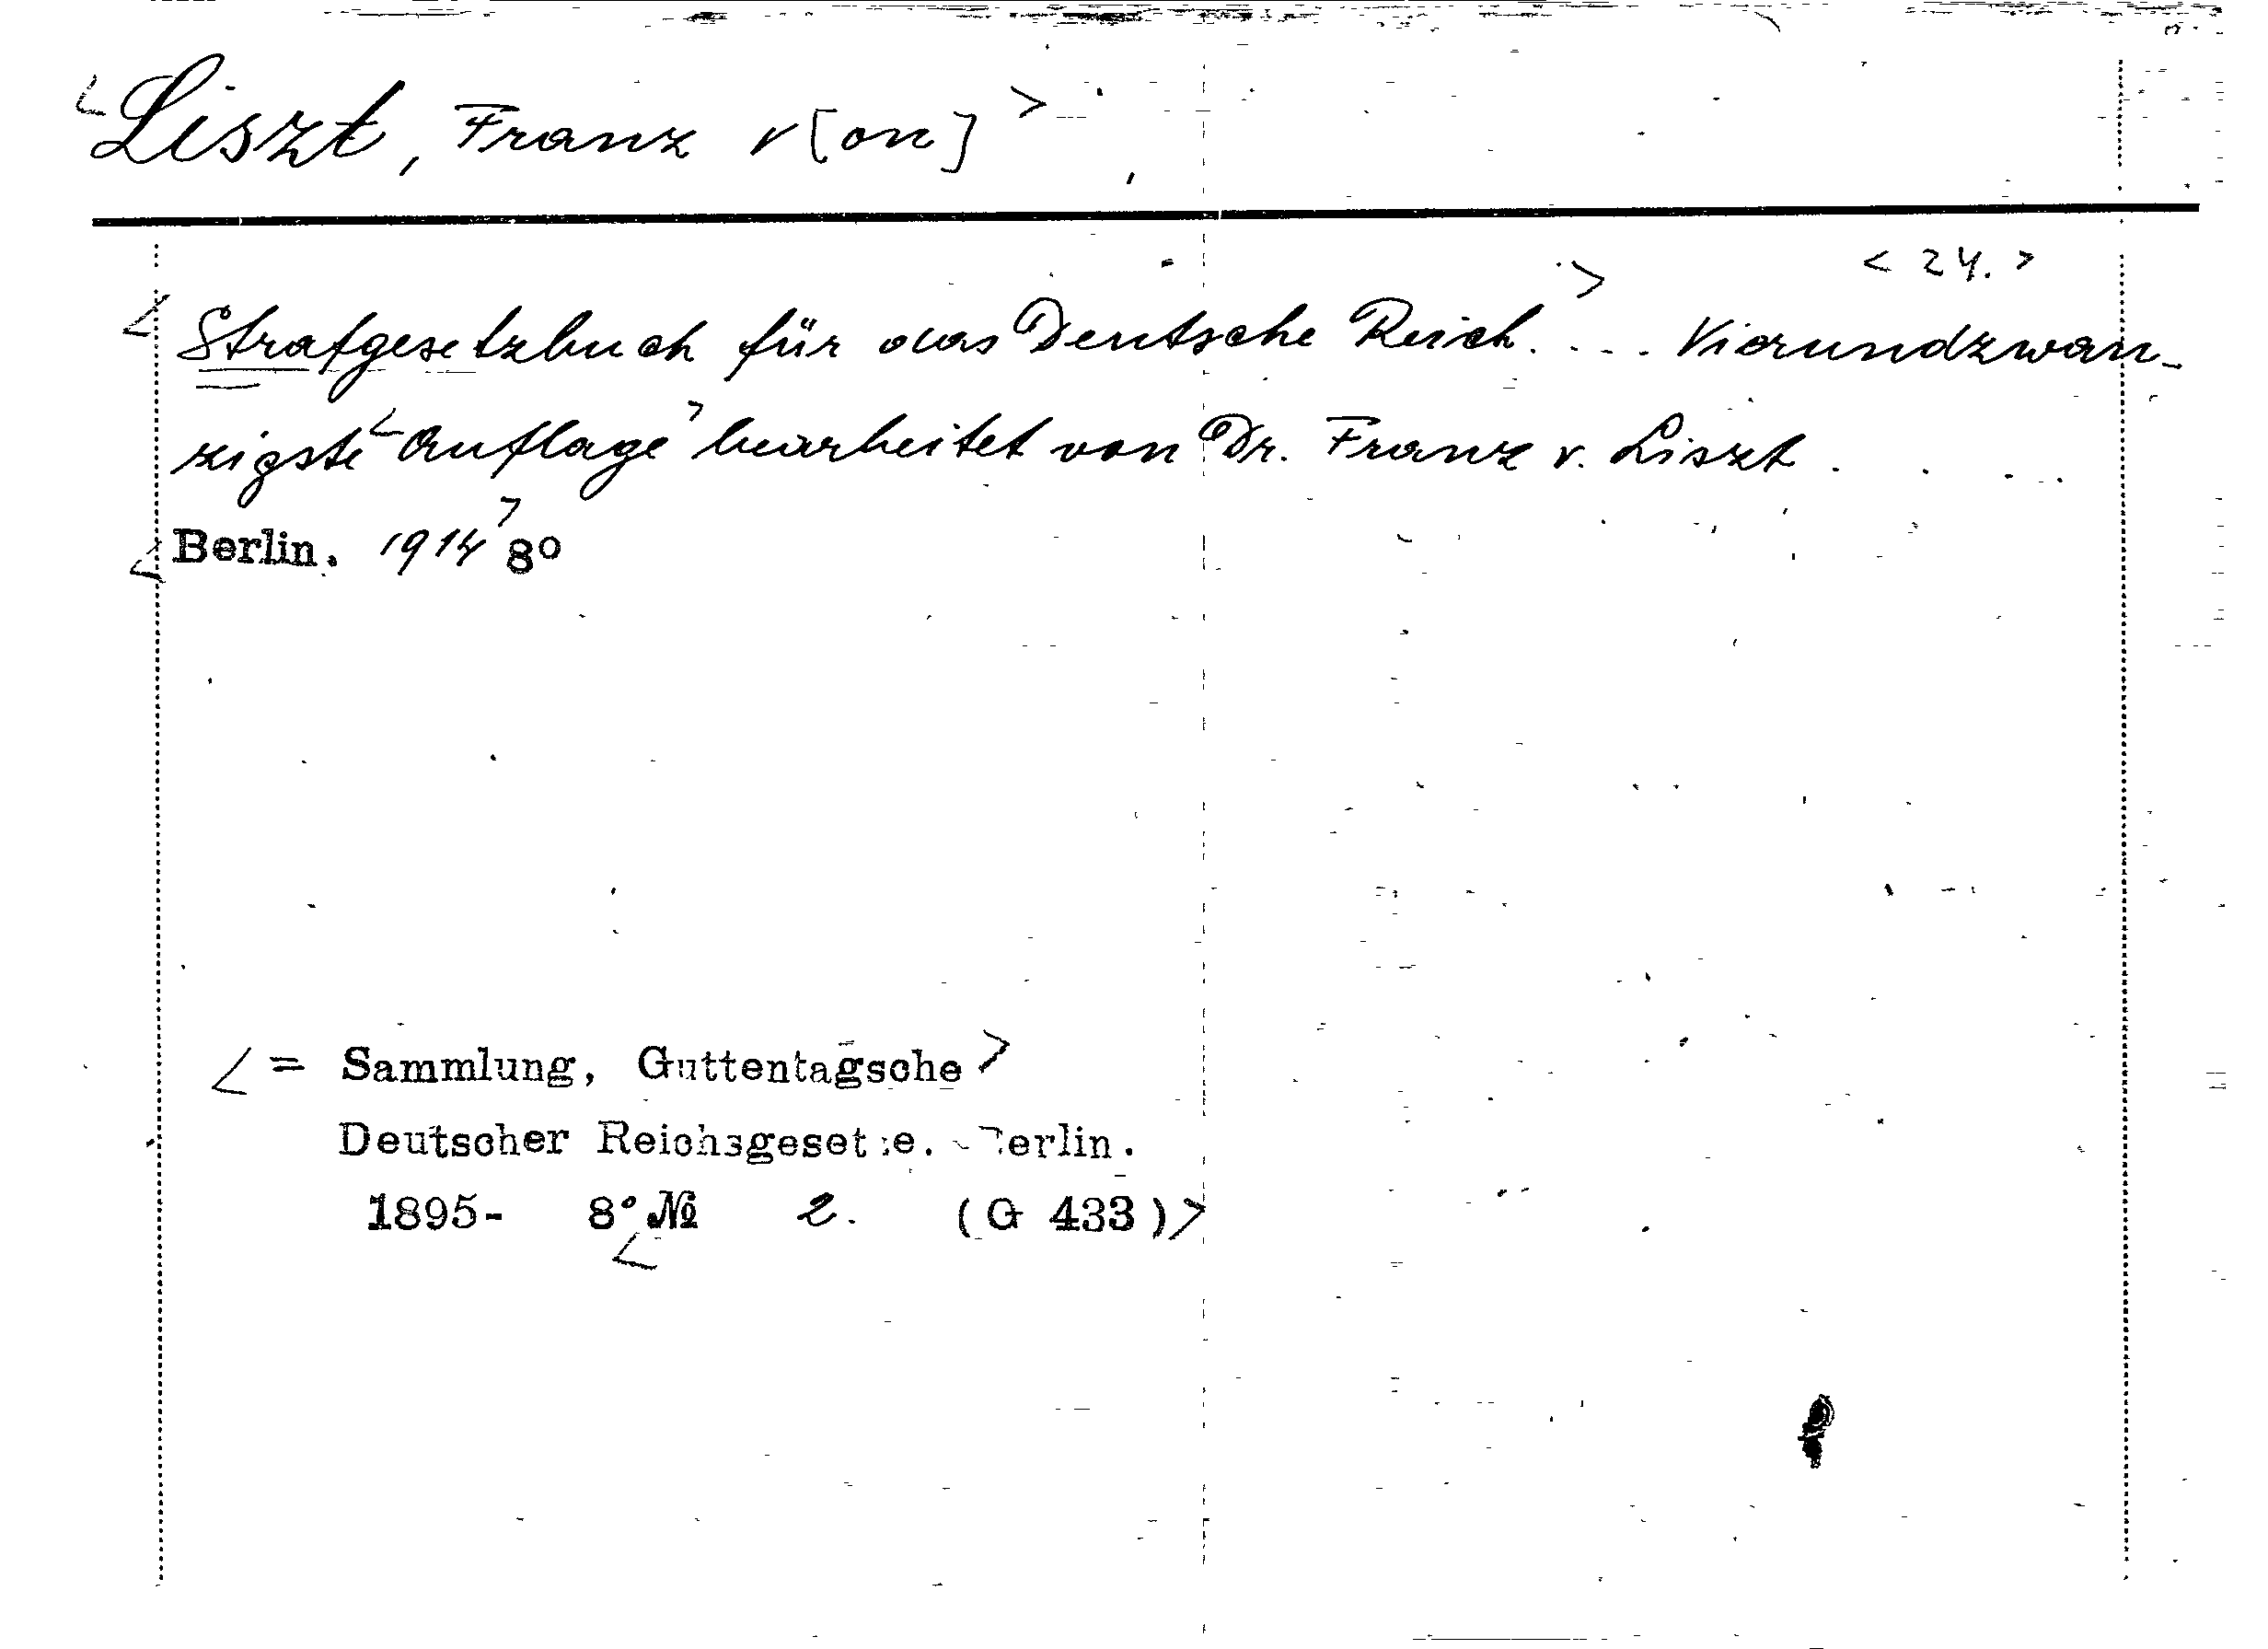 <Liszt, Franz v[on]>
<24.>
<Strafgesetzbuch für das Deutsche Reich.> ... Vierundzwan-
zigste <Auflage> bearbeitet von Dr. Franz v. Liszt . . . .
<Berlin. 1914> 8º
<= Sammlung, Guttentagsche>
Deutscher Reichsgesetze. - Berlin.
1895- 8° <№ 2. (G 433)>